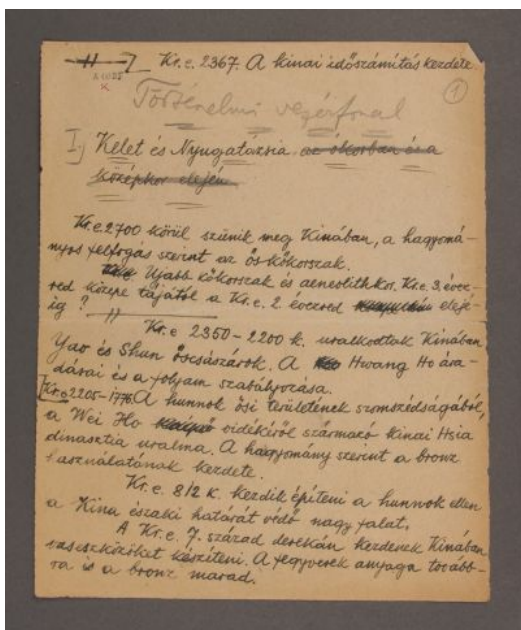 Kr.e. 2367. A kinai időszámítás kezdete
1
Történelmi vezérfonal
I.) Kelet és Nyugatázsia az ókorban és a
középkor elején
Kr.e. 2700 körül szünik meg Kinában, a hagyomá-
nyos felfogás szerint az ős-kőkorszak.
Ujabb kőkorszak és aeneolith kor. Kr.e. 3. évez-
red közepe tájától a Kr.e. 2 évezred elejé-
ig?
Kr.e 2350-2200 k. uralkodtak Kinában
Yao és Shun őscsászárok. A Hwang Ho ára-
dásai és a folyam szabályozása.
Kr.e 2205-1776 A hunnok ősi területének szomszédságából,
a Wei Ho vidékéről származó kinai Hsia
dinasztia uralma. A hagyomány szerint a bronz
használatának kezdete.
Kr.e. 812 k. kezdik építeni a hunnok ellen
a Kina északi határát védő nagy falat.
A Kr.e. 7. század derekán kezdenek Kinában
vaseszközöket készíteni. A fegyverek anyaga tovább-
ra is a bronz marad.